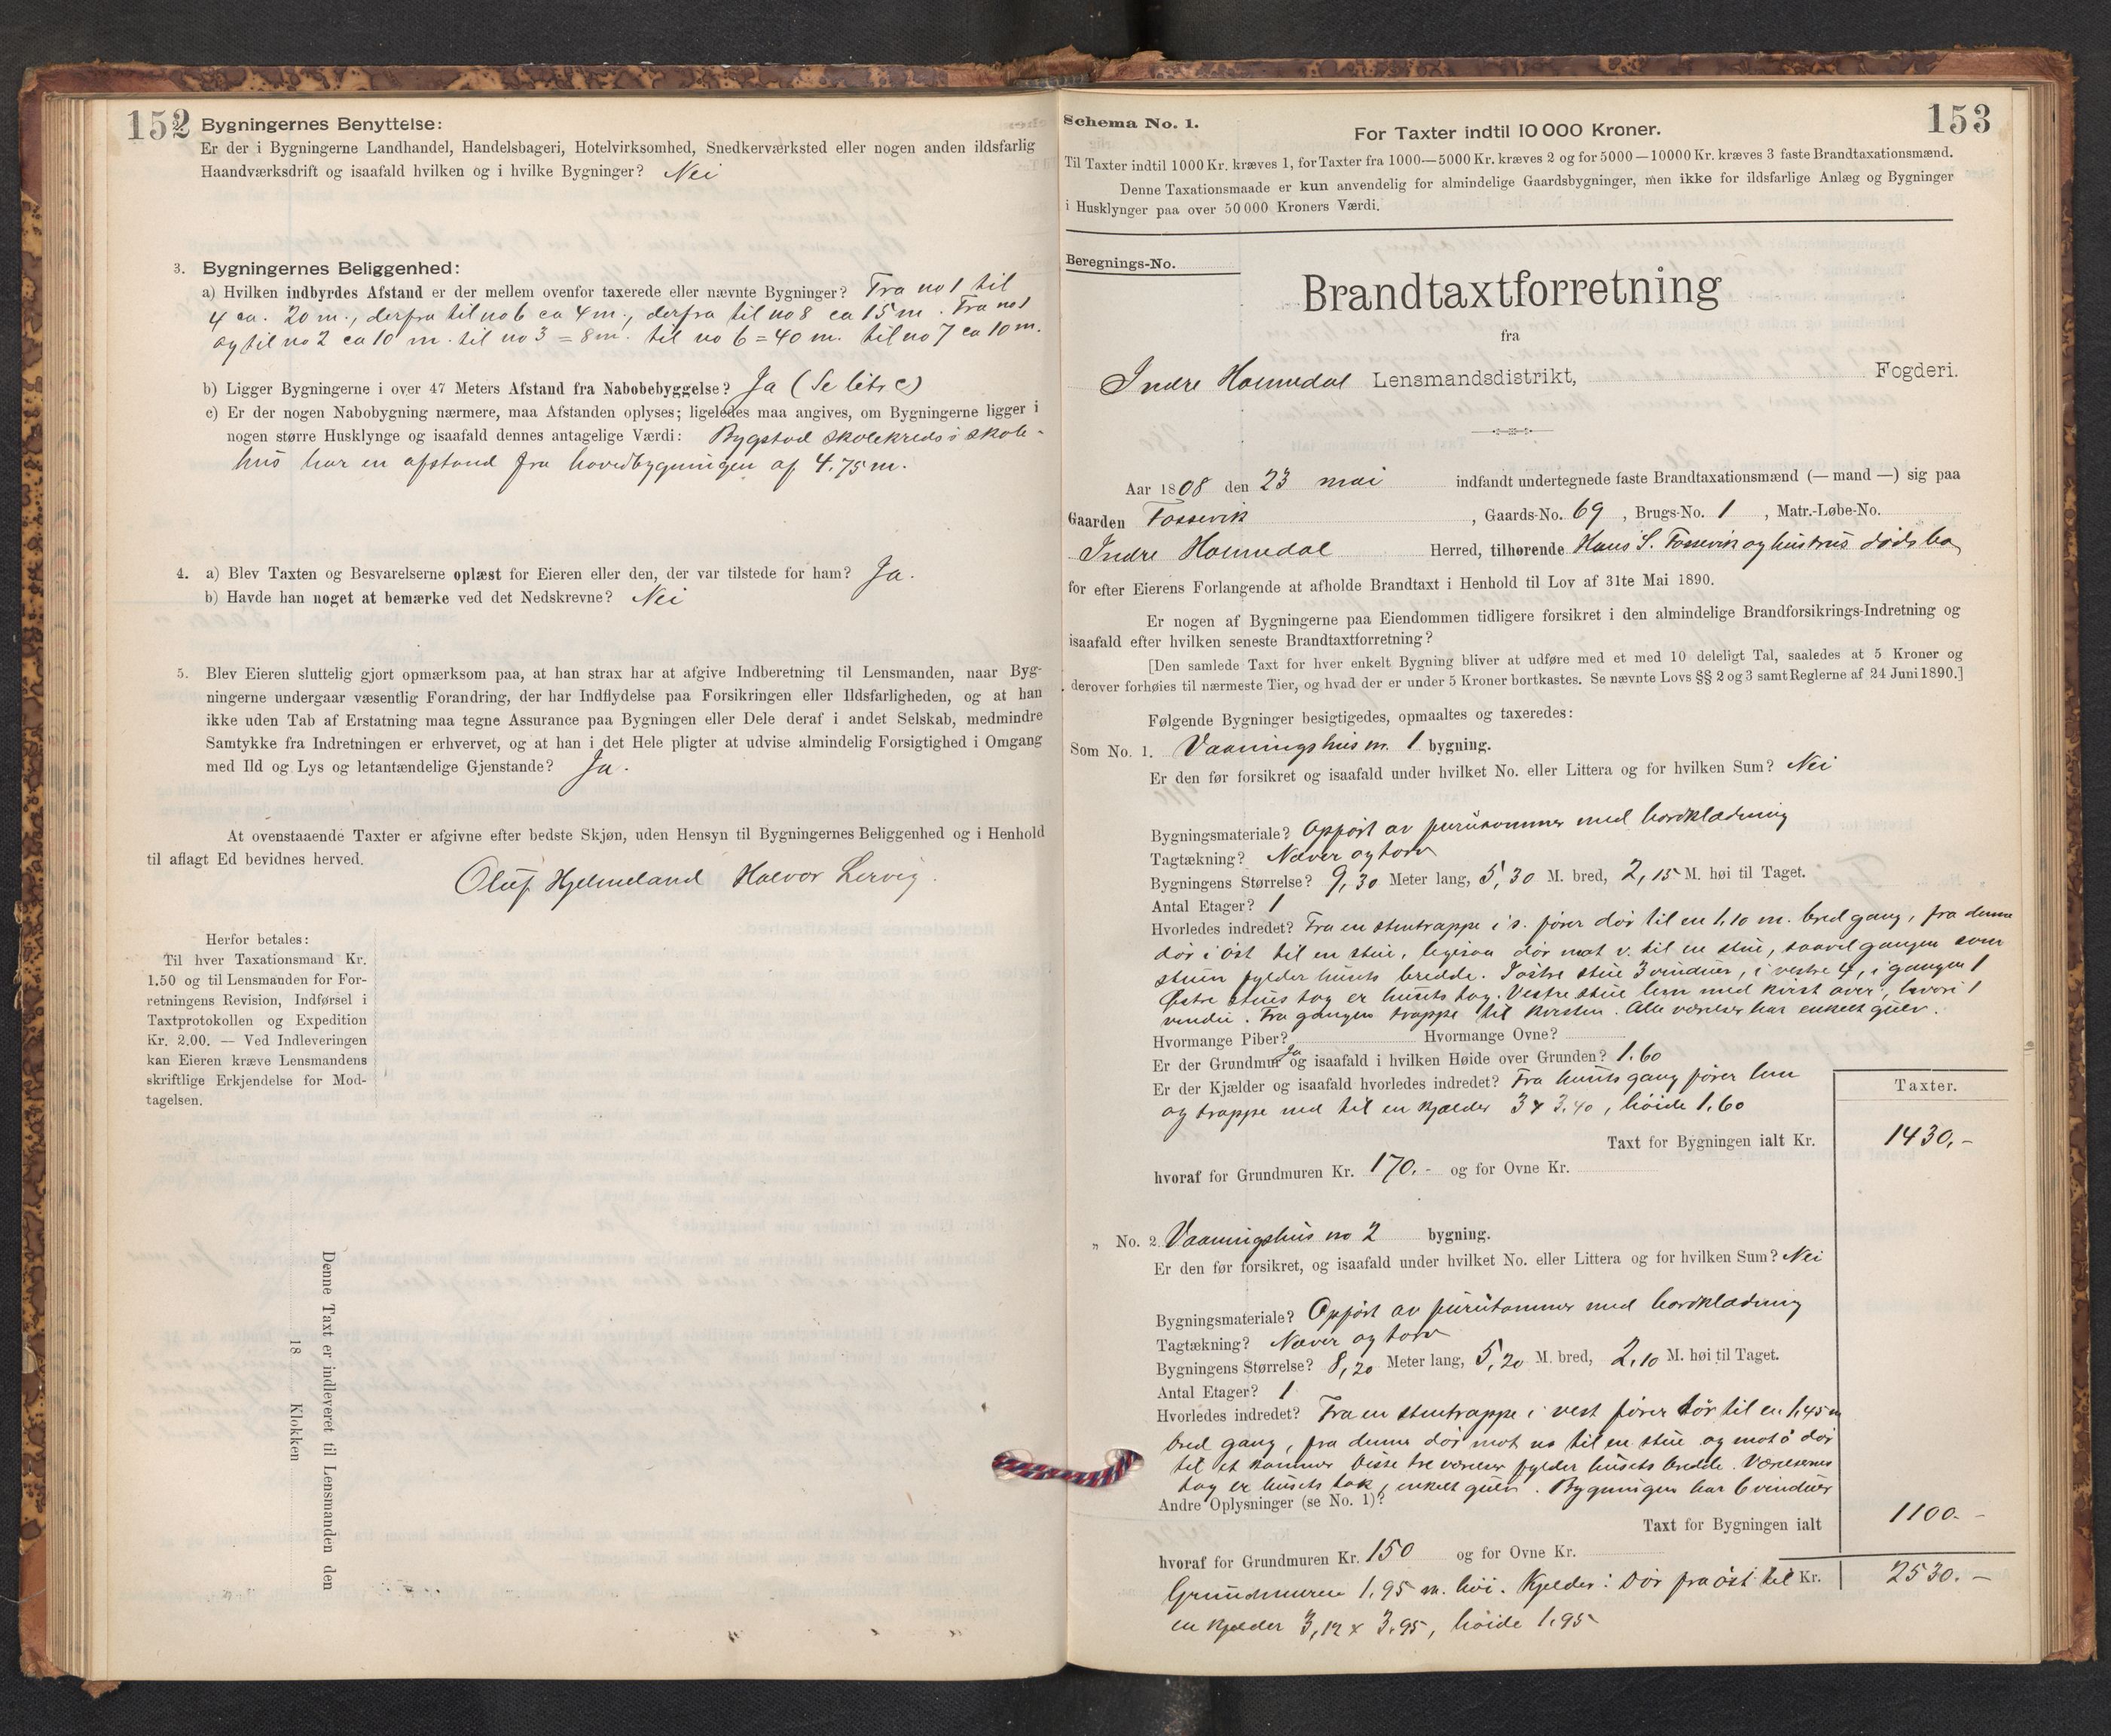 152
Bygningernes Benyttelse:
Er der i Bygningerne Landhandel, Handelsbageri, Hotelvirksomhed, Snedkerværksted eller nogen anden ildsfarlig
Haandværksdrift og isaafald hvilken og i hvilke Bygninger? Nei
3. Bygningernes Beliggenhed:
a) Hvilken indbyrdes Afstand er der mellem ovenfor taxerede eller nævnte Bygninger? Fra no 1 til
4 ca. 20 m., derfra til no 6 ca 4 m., derfra til no 8 ca 15 m. Fra no 1
og til no 2 ca 10 m. til no 3 = 8 m. til no 6 = 40 m. til no 7 ca 10 m.
b) Ligger Bygningerne i over 47 Meters Afstand fra Nabobebyggelse? Ja (Se litr c)
c) Er der nogen Nabobygning nærmere, maa Afstanden oplyses; ligeledes maa angives, om Bygningerne ligger i
nogen større Husklynge og isaafald dennes antagelige Værdi: Bygstad skolekreds's skole-
hus har en afstand fra hovedbygningen af 4.75 m.
4. a) Blev Taxten og Besvarelserne oplæst for Eieren eller den, der var tilstede for ham? Ja.
b) Havde han noget at bemærke ved det Nedskrevne? Nei
5. Blev Eieren sluttelig gjort opmærksom paa, at han strax har at afgive Indberetning til Lensmanden, naar Byg-
ningerne undergaar væsentlig Forandring, der har Indflydelse paa Forsikringen eller Ildsfarligheden, og at han
ikke uden Tab af Erstatning maa tegne Assurance paa Bygningen eller Dele deraf i andet Selskab, medmindre
Samtykke fra Indretningen er erhvervet, og at han i det Hele pligter at udvise almindelig Forsigtighed i Omgang
med Ild og Lys og letantændelige Gjenstande? Ja.
At ovenstaaende Taxter er afgivne efter bedste Skjøn, uden Hensyn til Bygningernes Beliggenhed og i Henhold
til aflagt Ed bevidnes herved.
Oluf Hjelmeland Halvor Lervig.
Herfor betales:
Til hver Taxationsmand Kr.
1.50 og til Lensmanden for For-
retningens Revision, Indførsel i
Taxtprotokollen og Expedition
Kr. 2.00. — Ved Indleveringen
kan Eieren kræve Lensmandens
skriftlige Erkjendelse for Mod-
tagelsen.
Denne Taxt er indleveret til Lensmanden den
18 Klokken
153
Schema No. 1.
For Taxter indtil 10 000 Kroner.
Til Taxter indtil 1000 Kr. kræves 1, for Taxter fra 1000—5000 Kr. kræves 2 og for 5000—10000 Kr. kræves 3 faste Brandtaxationsmænd.
Denne Taxationsmaade er kun anvendelig for almindelige Gaardsbygninger, men ikke for ildsfarlige Anlæg og Bygninger
i Husklynger paa over 50 000 Kroners Værdi.
Beregnings-No.
Brandtaxtforretning
fra
Indre Holmedal Lensmandsdistrikt, Fogderi.
Aar 1808 den 23 mai indfandt undertegnede faste Brandtaxationsmænd (— mand —) sig paa
Gaarden Fossevik, Gaards-No. 69, Brugs-No. 1, Matr.-Løbe-No.
Indre Holmedal Herred, tilhørende Hans S. Fossevik og hustrus dødsbo,
for efter Eierens Forlangende at afholde Brandtaxt i Henhold til Lov af 31te Mai 1890.
Er nogen af Bygningerne paa Eiendommen tidligere forsikret i den almindelige Brandforsikrings-Indretning og
isaafald efter hvilken seneste Brandtaxtforretning?
[Den samlede Taxt for hver enkelt Bygning bliver at udføre med et med 10 deleligt Tal, saaledes at 5 Kroner og
derover forhøies til nærmeste Tier, og hvad der er under 5 Kroner bortkastes. Se nævnte Lovs §§ 2 og 3 samt Reglerne af 24 Juni 1890.]
Følgende Bygninger besigtigedes, opmaaltes og taxeredes:
Som No. 1. Vaaningshus m. 1 bygning.
Er den før forsikret og isaafald under hvilket No. eller Littera og for hvilken Sum? Nei
Bygningsmateriale? Opført av furutømmer med bordklædning
Tagtækning? Næver og torv
Bygningens Størrelse? 9,30 Meter lang, 5,30 M. bred, 2,15 M. høi til Taget.
Antal Etager? 1
Hvorledes indredet? Fra en stentrappe i s. fører dør til en 1,10 m. bred gang, fra denne
dør i øst til en stue, ligesaa dør mot v. til en stue, saavel gangen som
stuen fylder husets bredde. I østre stue 3 vinduer, i vestre 4, i gangen 1
Østre stues tag er husets tag. Vestre stue lem med kvist over, hvori 1
vindu. Fra gangen trappe til kvisten. Alle værelser har enkelt gulv.
Hvormange Piber? Hvormange Ovne?
Er der Grundmur Ja og isaafald i hvilken Høide over Grunden? 1.60
Er der Kjælder og isaafald hvorledes indredet? Fra husets gang fører lem
og trappe ned til en kjælder 3 x 3,40, høide 1.60
Taxter.
Taxt for Bygningen ialt Kr. 1430,-
hvoraf for Grundmuren Kr. 170.- og for Ovne Kr.
„ No. 2. Vaaningshus no 2 bygning.
Er den før forsikret, og isaafald under hvilket No. eller Littera og for hvilken Sum? Nei
Bygningsmateriale? Opført av furutømmer med bordklædning
Tagtækning? Næver og torv
Bygningens Størrelse? 8,20 Meter lang, 5,20 M. bred, 2,10 M. høi til Taget.
Antal Etager? 1
Hvorledes indredet? Fra en stentrappe i vest fører dør til en 1,45 m
bred gang, fra denne dør mot no til en stue og mot ø dør
til et kammer Disse tre værelser fylder husets bredde. Værelsernes
tag er husets tak, enkelt gulv. Bygningen har 6 vinduer
Andre Oplysninger (se No. 1)?
Taxt for Bygningen ialt 1100.-
hvoraf for Grundmuren Kr. 150 og for Ovne Kr.
Grundmuren 1,95 m. høi. Kjelder: Dør fra øst til Kr. 2530.-
en kjelder 3,12 x 3.95, høide 1.95